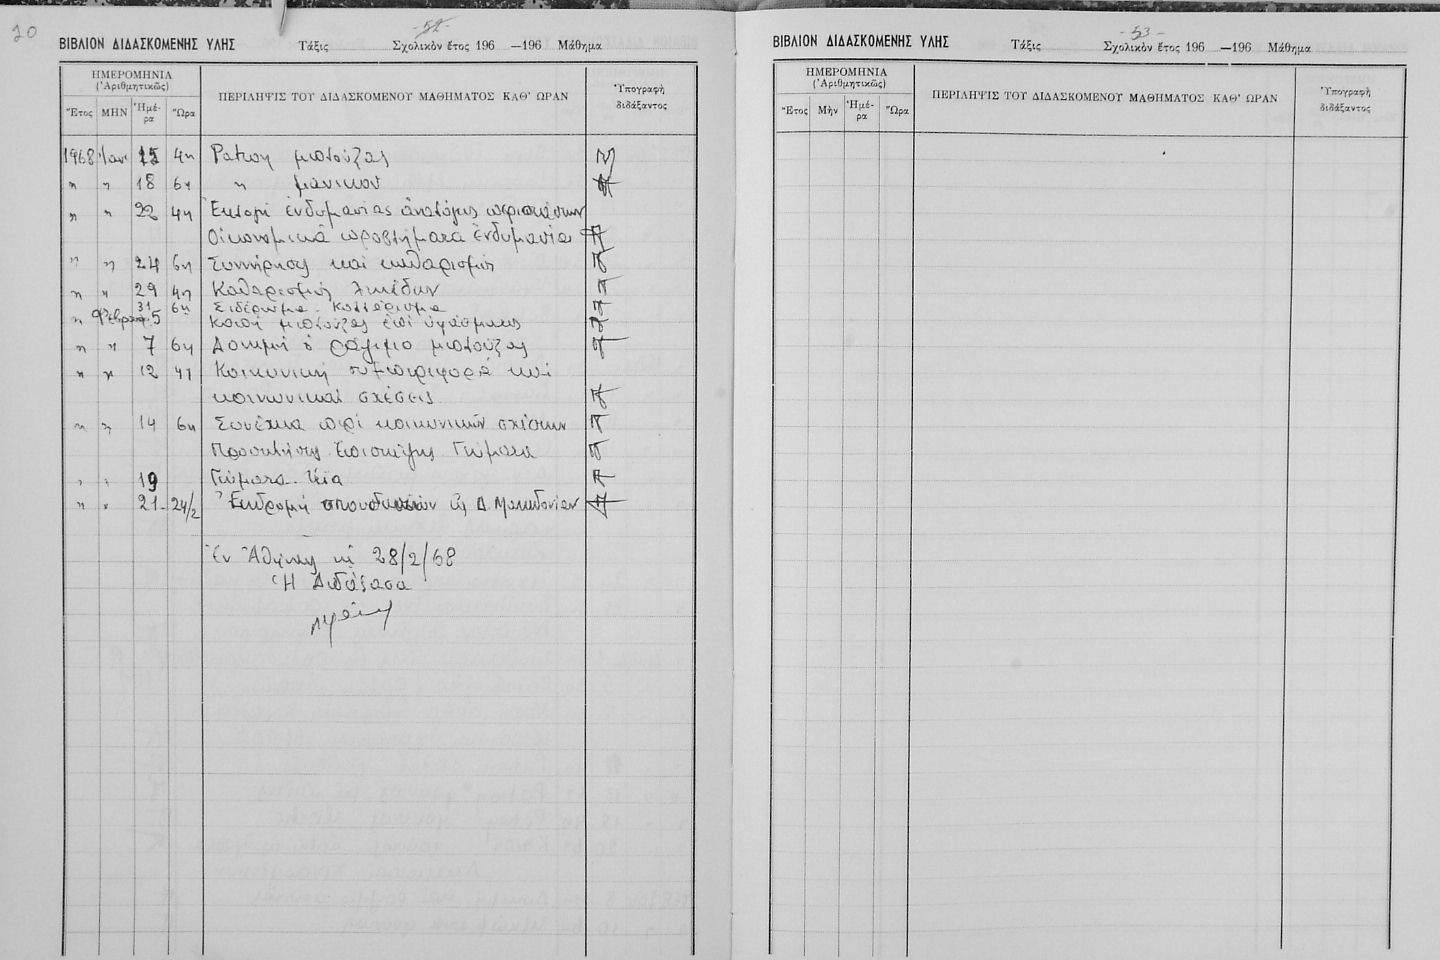 20
-52-
ΒΙΒΛΙΟΝ ΔΙΔΑΣΚΟΜΕΝΗΣ ΥΛΗΣ Τάξις Σχολικὸν ἔτος 196 —196 Μάθημα
ΗΜΕΡΟΜΗΝΙΑ
(Ἀριθμητικῶς)
Ἔτος ΜΗΝ Ἡμέρα Ὥρα
ΠΕΡΙΛΗΨΙΣ ΤΟΥ ΔΙΔΑΣΚΟΜΕΝΟΥ ΜΑΘΗΜΑΤΟΣ ΚΑΘ' ΩΡΑΝ
Ὑπογραφὴ διδάξαντος
1968 Ἰαν 15 4η Ραπτική μπλούζας
" " 18 6η " μανικιού
" " 22 4η Ἐκλογή ἐνδυμασίας ἀναλόγως περιστάσεων
Οἰκονομικά προβλήματα ἐνδυμασίας
" " 24 6η Συντήρησις καί καθαρισμός
" " 29 4η Καθαρισμός λεκέδων
31 6η Σιδέρωμα - Κολλάρισμα
" Φεβρ 5 Κοπή μπλούζας ἐπί ὑφάσματος
" " 7 6η Δοκιμή & ράψιμο μπλούζας
" " 12 4η Κοινωνική συμπεριφορά καί
κοινωνικαί σχέσεις
" " 14 6η Συνέχεια περί κοινωνικῶν σχέσεων
Προσκλήσεις Ἐπισκέψεις Γεύματα
" " 19 Γεύματα - Τέϊα
" " 21-24/2 Ἐκδρομή σπουδαστριῶν εἰς Δ. Μακεδονίαν
Ἐν Ἀθήναις τῇ 28/2/68
Ἡ Διδάξασα
-53-
ΒΙΒΛΙΟΝ ΔΙΔΑΣΚΟΜΕΝΗΣ ΥΛΗΣ Τάξις Σχολικὸν ἔτος 196 —196 Μάθημα
ΗΜΕΡΟΜΗΝΙΑ
(Ἀριθμητικῶς)
Ἔτος Μὴν Ἡμέρα Ὥρα
ΠΕΡΙΛΗΨΙΣ ΤΟΥ ΔΙΔΑΣΚΟΜΕΝΟΥ ΜΑΘΗΜΑΤΟΣ ΚΑΘ' ΩΡΑΝ
Ὑπογραφὴ διδάξαντος